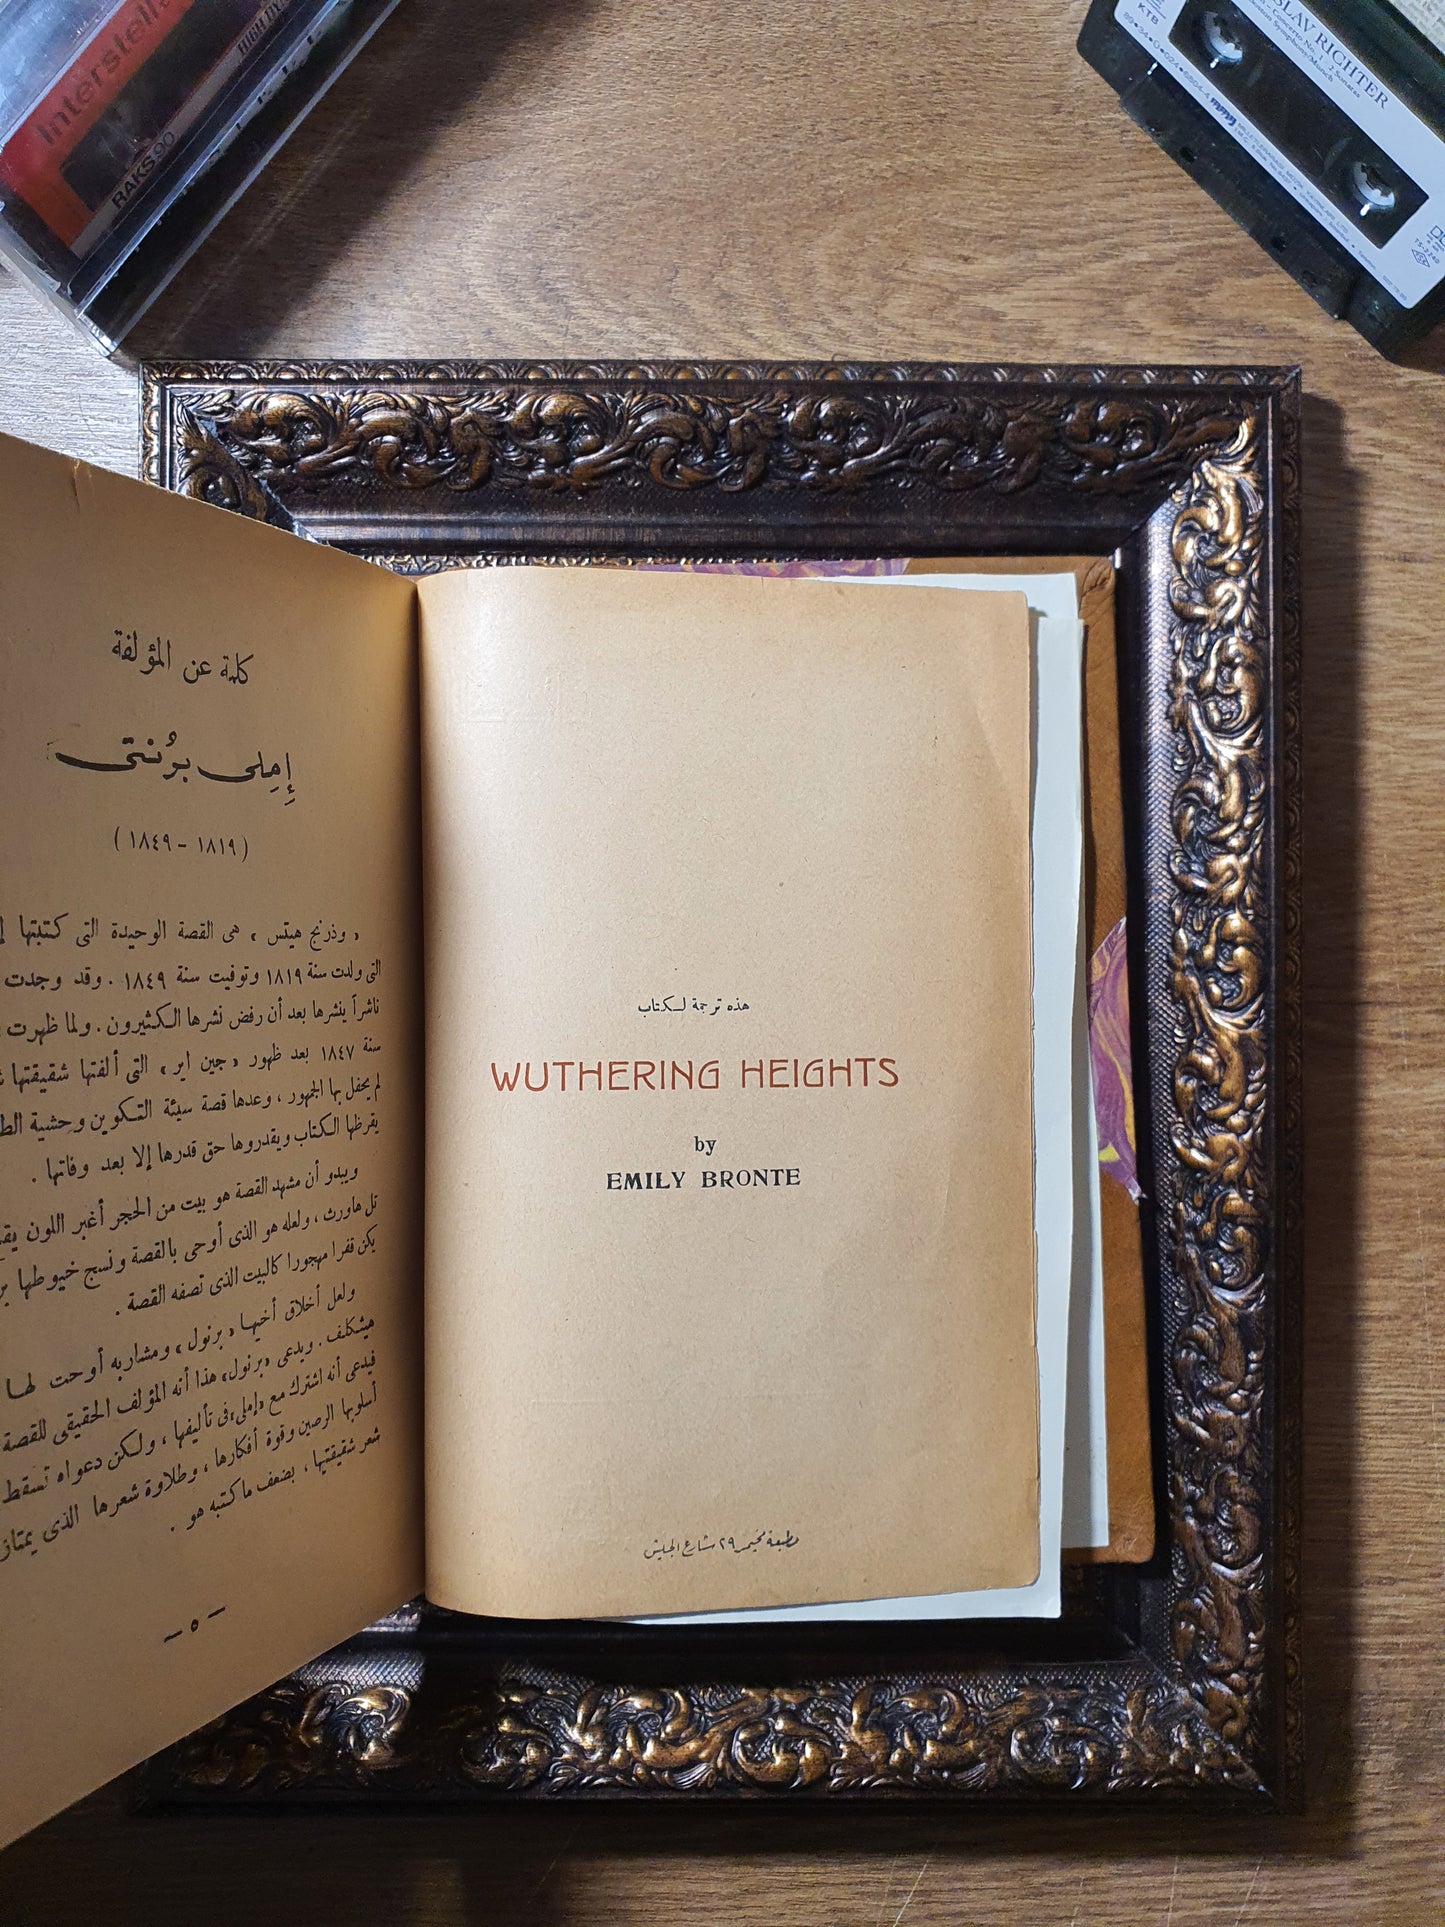 Interstell
RAKS 90
SLAV RICHTER
Concerto No. 1 2 Sonatas
Boston Symphony/Munch
KTB
89•34•O•024•6804-4
TS-2240
كلمة عن المؤلفة
إملى برنتى
(١٨١٩ - ١٨٤٩)
« وذرنج هيتس » هى القصة الوحيدة التى كتبتها
التى ولدت سنة ١٨١٩ وتوفيت سنة ١٨٤٩ . وقد وجدت
ناشراً ينشرها بعد أن رفض نشرها الكثيرون . ولما ظهرت
سنة ١٨٤٧ بعد ظهور « جين اير » التى ألفتها شقيقتها
لم يحفل بها الجمهور ، وعدها قصة سيئة التكوين وحشية
يقرظها الكتاب ويقدروها حق قدرها إلا بعد وفاتها .
ويبدو أن مشهد القصة هو بيت من الحجر أغبر اللون
تل هاورث ، ولعله هو الذى أوحى بالقصة ونسج خيوطها
يكن قفرا مهجورا كالبيت الذى تصفه القصة .
ولعل أخلاق أخيها « برنول » ومشاربه أوحت لها
هيثكلف . ويدعى « برنول » هذا أنه المؤلف الحقيقى للقصة
فيدعى أنه اشترك مع « إملى » فى تأليفها ، ولكن دعواه تسقط
أسلوبها الرصين وقوة أفكارها ، وطلاوة شعرها الذى يمتاز
شعر شقيقتيها ، بضعف ما كتبه هو .
— ٥ —
هذه ترجمة لكتاب
WUTHERING HEIGHTS
by
EMILY BRONTE
مطبعة مخيمر ٢٩ شارع الجيش